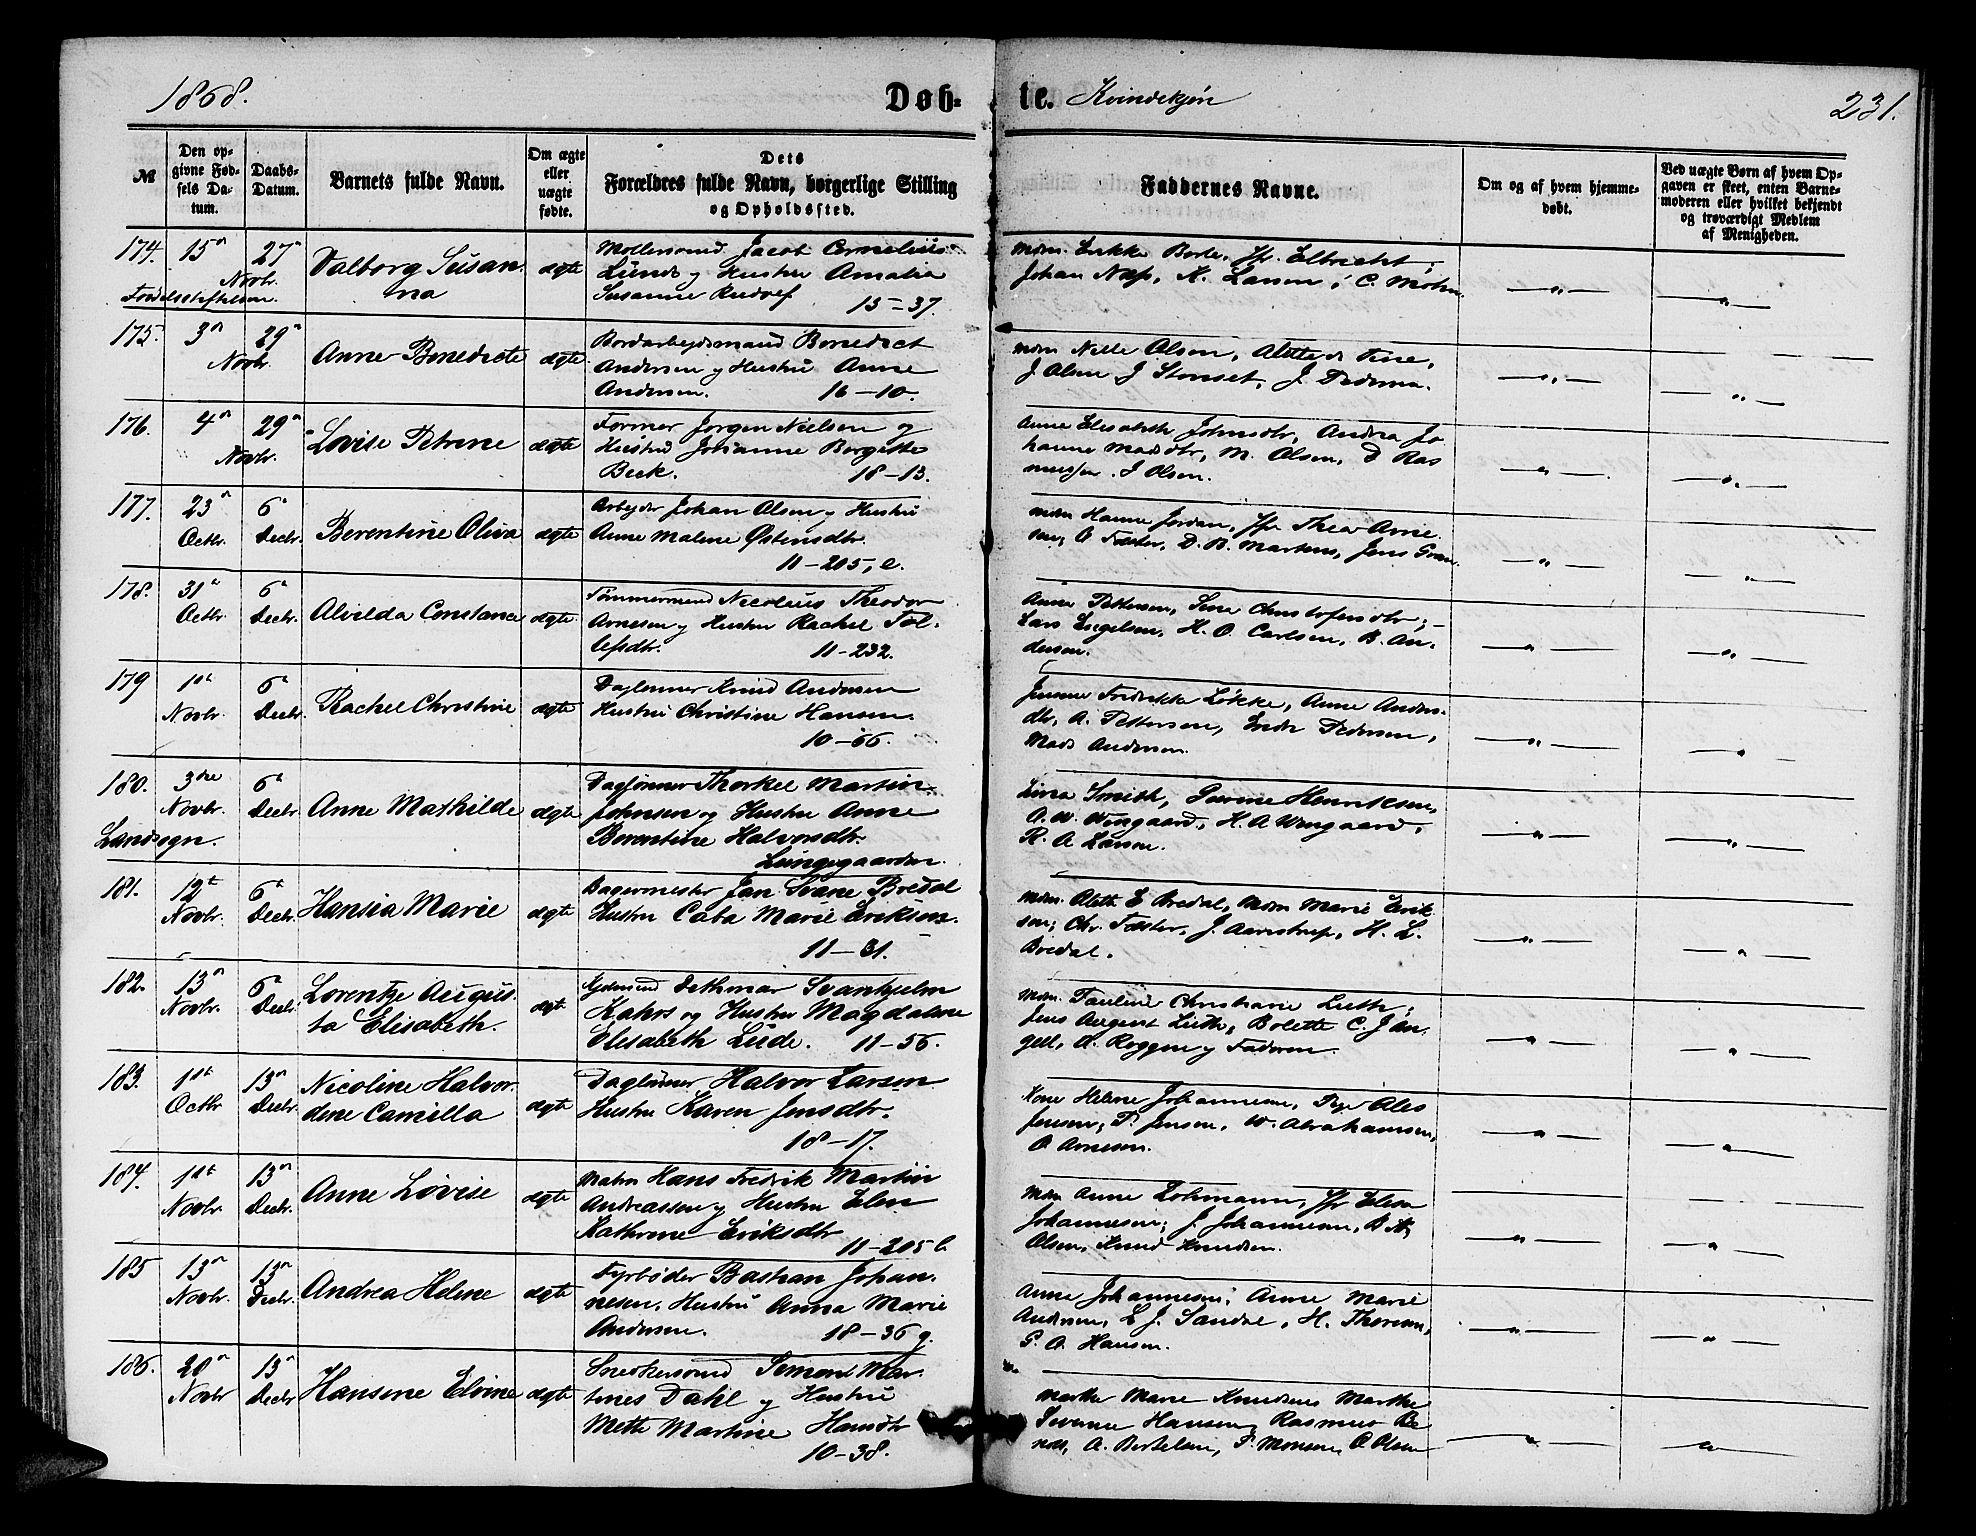 1868.
Døb-
te. Kvindekjøn
231.
№
Den op-
givne Fød-
sels Da-
tum.
Daabs-
Datum.
Barnets fulde Navn.
Om ægte
eller
uægte
fødte.
Dets
Forældres fulde Navn, borgerlige Stilling
og Opholdssted.
Faddernes Navne.
Om og af hvem hjemme-
døbt.
Ved uægte Børn af hvem Op-
gaven er skeet, enten Barne-
moderen eller hvilket bekjendt
og troværdigt Medlem
af Menigheden.
174. 15 27
Novbr.
Fødselsstiftelsen
Valborg Susan-
na
ægte
Møllersvend Jacob Cornelius
Lunde og Hustru Amalia
Susanne Rudolf 15-37.
Johan Næss, K. Larsen, C. Mohn
175. 3 29
Novbr.
Anne Benedicte
ægte
Bordarbeidsmand Benedict
Andersen og Hustru Anne
Andersen. 16-10.
Mdm Nelle Olsen,
J Olsen J Stenset, J. Pedersen.
176. 4 29
Novbr.
Lovise Petrine
ægte
Former Jørgen Nielsen og
Hustru Johanne Bergitte
Beck. 18-13.
Anne Elisabeth Johnsdtr, Andrea Jo
hanne Madsdtr, M. Olsen, D Ras
mussen. J Olsen.
177. 23 6
Octbr. Decbr.
Berentine Oliva
ægte
Arbeider Johan Olsen og Hustru
Anne Malene Østensdtr.
11-205, e.
Mdm Hanne Jordan, Jfr Thea Arne
sen, A Fæster, D. B. Martens, Jens Gran
178. 31 6
Octbr. Decbr.
Alvilda Constance
ægte
Tømmermand Nicolius Theodor
Arnesen og Hustru Rachel Tol-
lefsdtr. 11-232.
Anne Pettersen, Sina Christofersdtr;
Lars Engelsen, H. O. Carlsen, B. An-
dersen.
179 1st 6
Novbr. Decbr.
Rachel Christine
ægte
Daglønner Knud Andersen
Hustru Christine Hansen.
10-66.
Jensine Fredrikke Løkke, Anne Anders-
dtr, A. Pettersen, Endre Pedersen,
Mads Andersen.
180. 3die 6
Novbr. Decbr.
Landsogn.
Anne Mathilde
ægte
Daglønner Thorkel Martin
Johnsen og Hustru Anne
Berentine Halvorsdtr.
Lungegaarden.
Lina Smith, Severine Henriksen,
A. W. Wingaard, H. A Wingaard,
R. A Larsen.
181. 12 6
Novbr. Decbr
Hansia Marie
ægte
Bagermester Jan Svane Bredal
Hustru Caba Marie Eriksen.
11-61.
Mdm. Aleth E Bredal, Mdm Marie Erik
sen; Chr. Fæster, J. Aarestrup, H. L.
Bredal.
182. 13 6
Novbr. Decbr
Lorentze Augus-
ta Elisabeth.
ægt
Dethmar Svanhjelm
Kahrs og Hustru Magdalene
Elisabeth Lude. 11-56.
Mdm. Pauline Christiane Luth;
Jens August Luth, Bolette C. J An-
gell, A. Roggen og Faderen.
183. 1st 13
Octbr Decbr
Nicoline Halvor-
dine Camilla
ægte
Daglønner Halvor Larsen
Hustru Karen Jensdtr.
18-17.
Kone Helene Johannesen, Pige Ales
Jensen; P. Jensen, W. Abrahamsen,
O Arnesen.
184. 1st 13
Novbr. Decbr.
Anne Lovise
ægte
Matros Hans Fredrik Martin
Andreassen og Hustru Elen
Kathrine Eriksdtr
11-205 b
Mdm Anne Lohmann, Jfr Elisa
Johannesen; J. Johannesen, B. A.
Olsen, Knud Knudsen.
185 13 13
Novbr. Decbr.
Andrea Helene
ægte
Fyrbøder Bastian Johan-
nesen, Hustru Anna Marie
Andersen. 18-36 g.
Anna Johannesen; Anne Marie
Andersen, E J. Sandal, H. Thoresen,
P. A. Hansen.
186. 20 13
Novbr Decbr
Hansine Elvine
ægte
Snedkersvend Simon Mar-
tines Dahl og Hustru
Mette Martine Hansdtr
10-38.
Marthe Marie Knudsen Marthe
Severine Hansen, Rasmus Be
A. Bertelsen, P. Monsen, O Olsen